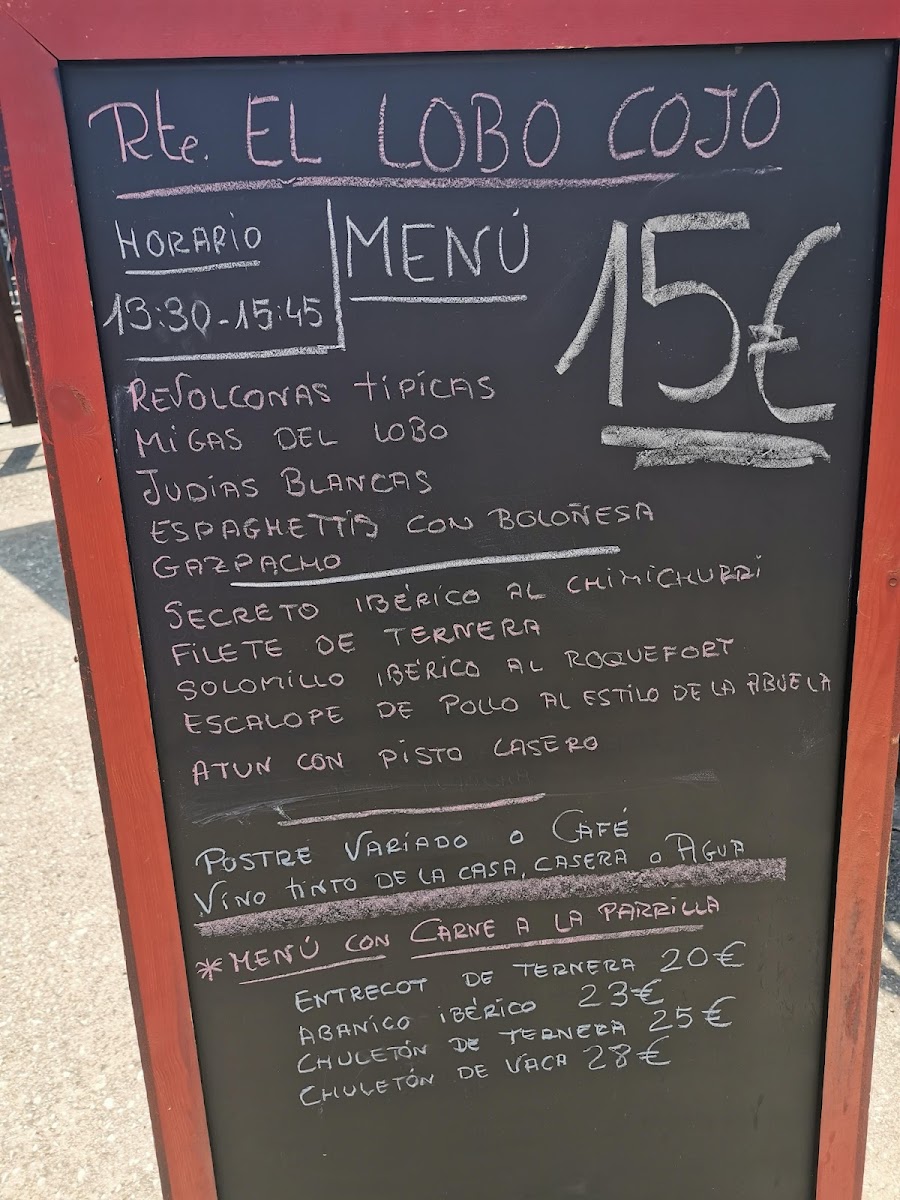 Rte. EL LOBO COJO
HORARIO
13:30-15:45
MENÚ
15€
REVOLCONAS TIPICAS
MIGAS DEL LOBO
JUDIAS BLANCAS
ESPAGHETTIS CON BOLOÑESA
GAZPACHO
SECRETO IBÉRICO AL CHIMICHURRI
FILETE DE TERNERA
SOLOMILLO IBÉRICO AL ROQUEFORT
ESCALOPE DE POLLO AL ESTILO DE LA ABUELA
ATUN CON PISTO CASERO
POSTRE VARIADO O CAFÉ
VINO TINTO DE LA CASA, CASERA O AGUA
*MENÚ CON CARNE A LA PARRILLA
ENTRECOT DE TERNERA 20€
ABANICO IBÉRICO 23€
CHULETÓN DE TERNERA 25€
CHULETÓN DE VACA 28€